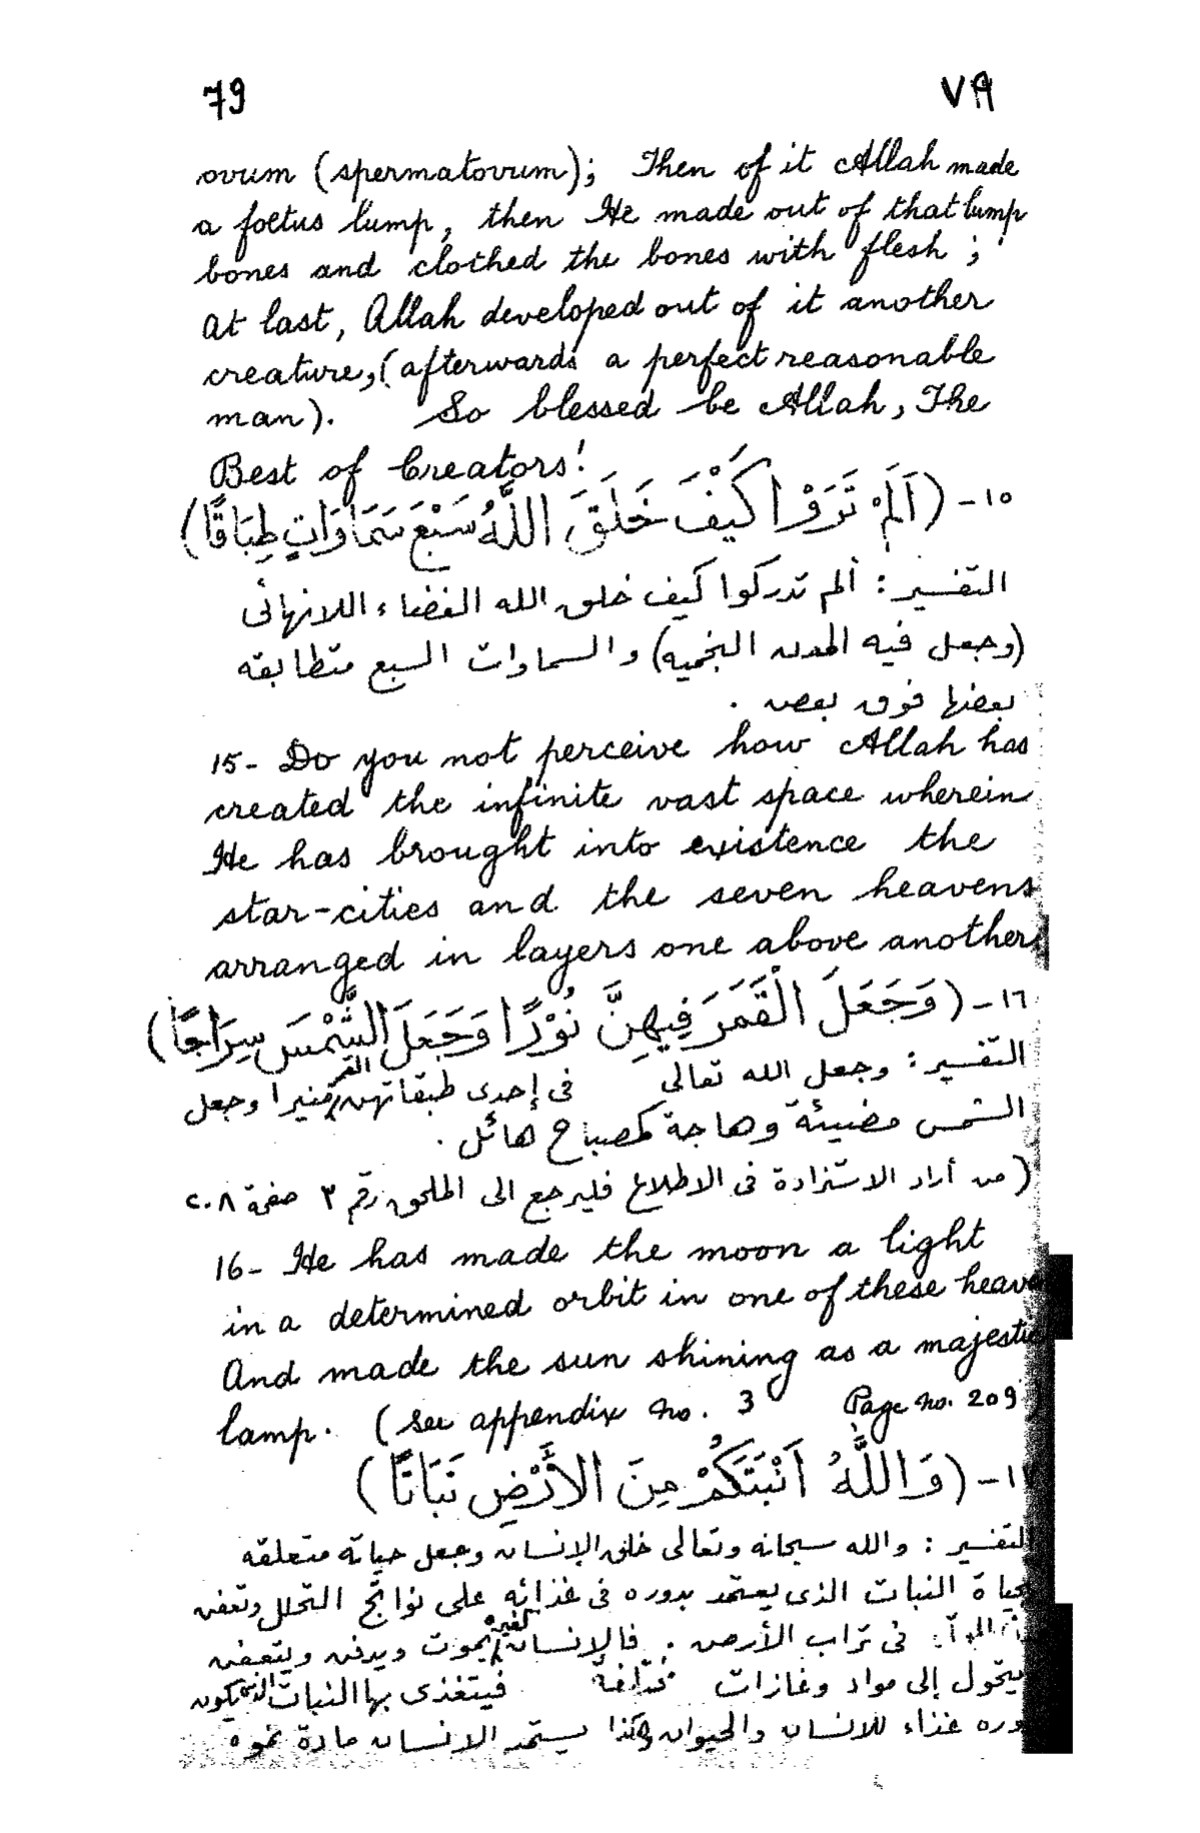 79 ٧٩
ovum (spermatovum); Then of it Allah made
a foetus lump, then He made out of that lump
bones and clothed the bones with flesh;
At last, Allah developed out of it another
creature, (afterwards a perfect reasonable
man). So blessed be Allah, The
Best of Creators!
١٥- (اَلَمْ تَرَوْا كَيْفَ خَلَقَ اللَّهُ سَبْعَ سَمَاوَاتٍ طِبَاقًا)
التفسير: ألم تدركوا كيف خلق الله الفضاء اللانهائى
(وجعل فيه المدن النجميه) والسماوات السبع متطابقه
بعضها فوق بعض .
15- Do you not perceive how Allah has
created the infinite vast space wherein
He has brought into existence the
star-cities and the seven heavens
arranged in layers one above another
١٦- (وَجَعَلَ الْقَمَرَ فِيهِنَّ نُوْرًا وَجَعَلَ الشَّمْسَ سِرَاجًا)
التفسير: وجعل الله تعالى فى إحدى طبقاتهن القمر منيرا وجعل
الشمس مضيئة وهاجة كمصباح هائل .
(من أراد الاستزادة فى الاطلاع فليرجع الى الملحق رقم ٣ صفحة ٢٠٨
16- He has made the moon a light
in a determined orbit in one of these heave
And made the sun shining as a majestic
lamp. (see appendix no. 3 Page no. 209)
١٧- (وَاللَّهُ اَنْبَتَكُمْ مِنَ الأَرْضِ نَبَاتًا)
التفسير: والله سبحانه وتعالى خلق الإنسان وجعل حياته متعلقه
بحياة النبات الذى يعتمد بدوره فى غذائه على نواتج التحلل وتعفن
فى تراب الأرض . فالإنسان كغيره يموت ويدفن ويتعفن
يتحول إلى مواد وغازات مختلفة فيتغذى بها النبات الذى يكون
وره غذاء للانسان والحيوان وهكذا يستمد الانسان مادة نموه